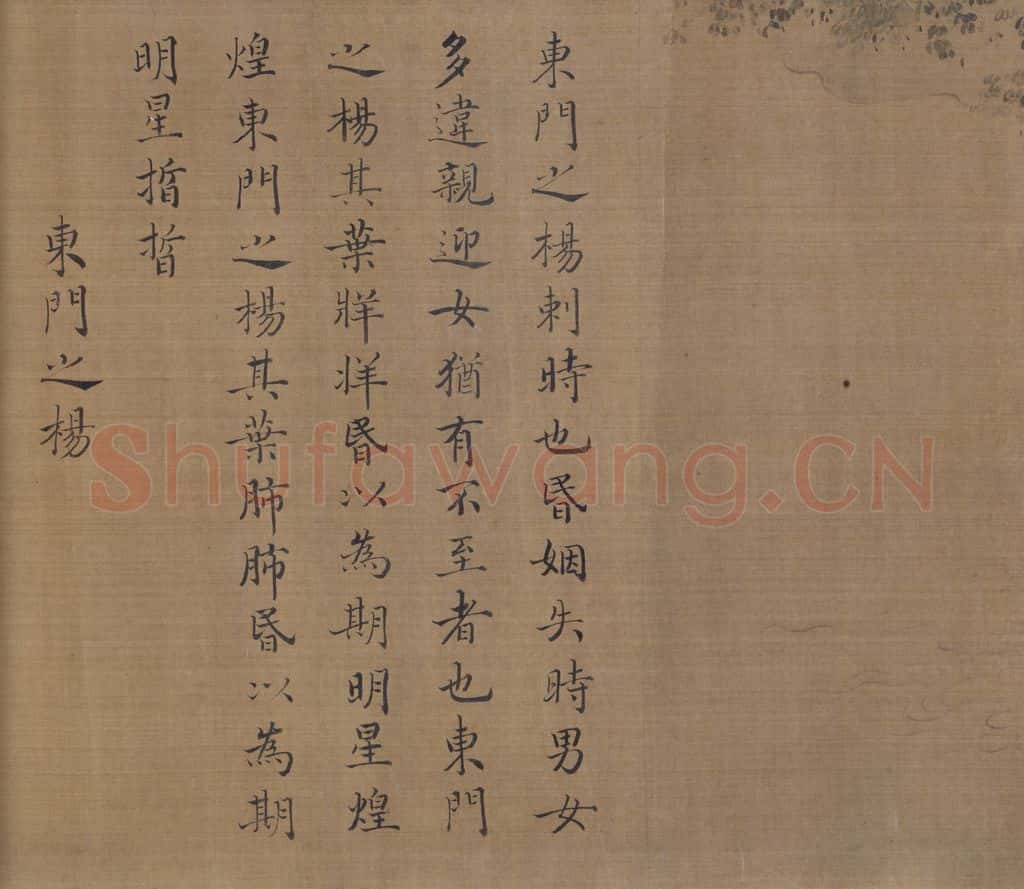 東門之楊刺時也昬姻失時男女
多違親迎女猶有不至者也東門
之楊其葉牂牂昬以為期明星煌
煌東門之楊其葉肺肺昬以為期
明星晢晢
東門之楊
Shufawang.CN